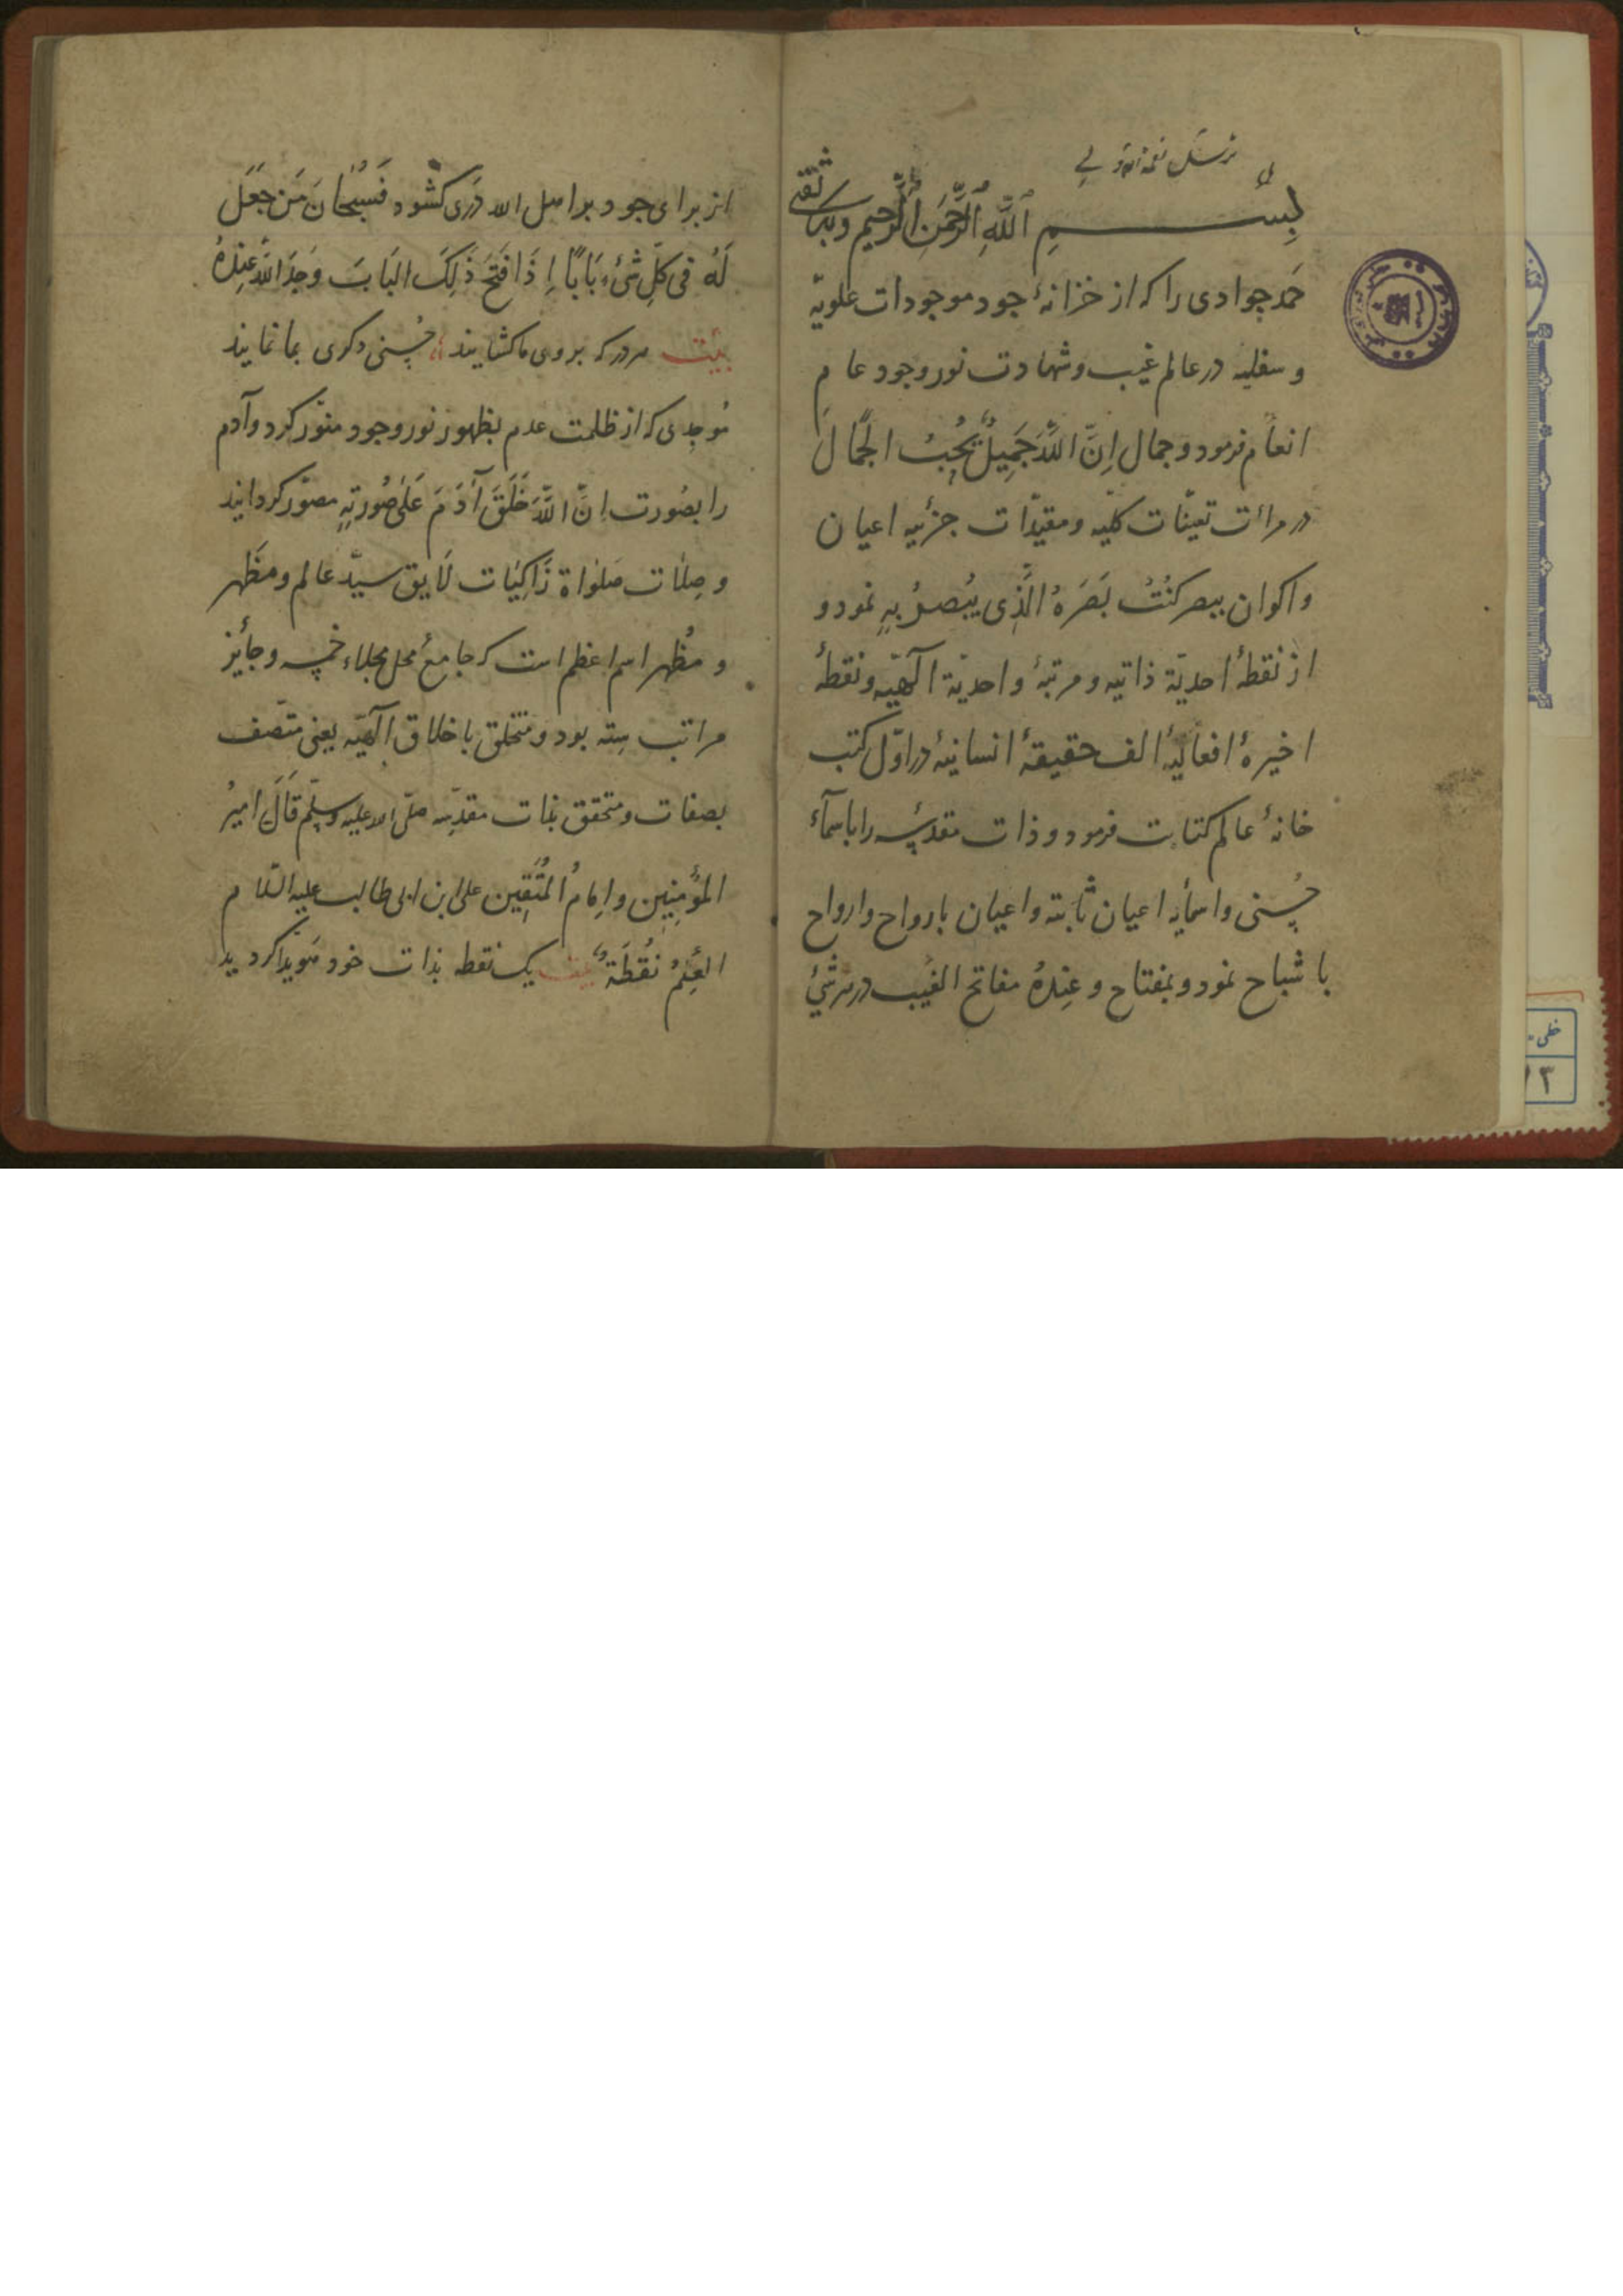 بِسْمِ ٱللَّهِ ٱلرَّحْمَنِ ٱلرَّحِيمِ وبك ثقتی
حَمد جوادی را که از خزانهٔ جود موجودات علویّه
و سفلیه در عالم غیب و شهادت نور وجود عام
انعام فرمود و جمال اِنَّ اللّٰهَ جَمِیلٌ یُحِبُّ الْجَمَالَ
در مرات تعیّنات کلیّه و مقیدّات جزئیه اعیان
واکوان ببصر کُنْتُ بَصَرَهُ الَّذِی یُبْصِرُ بِهِ نمود و
از نقطهٔ احدیّة ذاتیه و مرتبهٔ واحدیّة آلهیّه و نقطهٔ
اخیرهٔ افعالیهٔ الف حقیقهٔ انسانیهٔ در اوّل کتب
خانهٔ عالم کتابت فرمود و ذات مقدسه را باسمآء
حُسنی و اسمآیه اعیان ثابته و اعیان بارواح و ارواح
باشباح نمود و بمفتاح وعِنْدَهُ مفاتح الغیب در هر شیٔ
از برای جود بر اهل الله دَری کشود فَسُبْحَانَ مَن جَعَلَ
لَهُ فی کلِّ شیٔءٍ بَابًا اِذَا فَتَحَ ذَلِکَ البَابَ وَجَدَ اللّٰهَ عِنْدَهُ
بیت هر در که بروی ما کشایند حُسنی دکری بما نمایند
مُوجدی که از ظلمت عدم بظهور نور وجود منوّر کرد و آدم
را بصُورت اِنَّ اللّٰهَ خَلَقَ آدَمَ عَلٰی صُورَتِهِ مصوّر کردانید
و صِلات صَلوٰاة زَاکِیَات لَایق سیدّ عالم و مَظهر
و مُظهر اسم اعظم است که جامعٔ محل مجلاء خمسه و جایٔز
مراتب ستِه بود و متخلق باخلاق آلهیّه یعنی متّصف
بصفات و متحقق بذات مقدسِه صلّی الله علیه وسلّم قَالَ امیرُ
المُؤمِنِین و اِمَامُ المُتَّقِین علی ابن ابی طالب علیه السّلام
العِلمُ نُقطَةٌ بیت یک نقطه بذات خود هویدا کردید